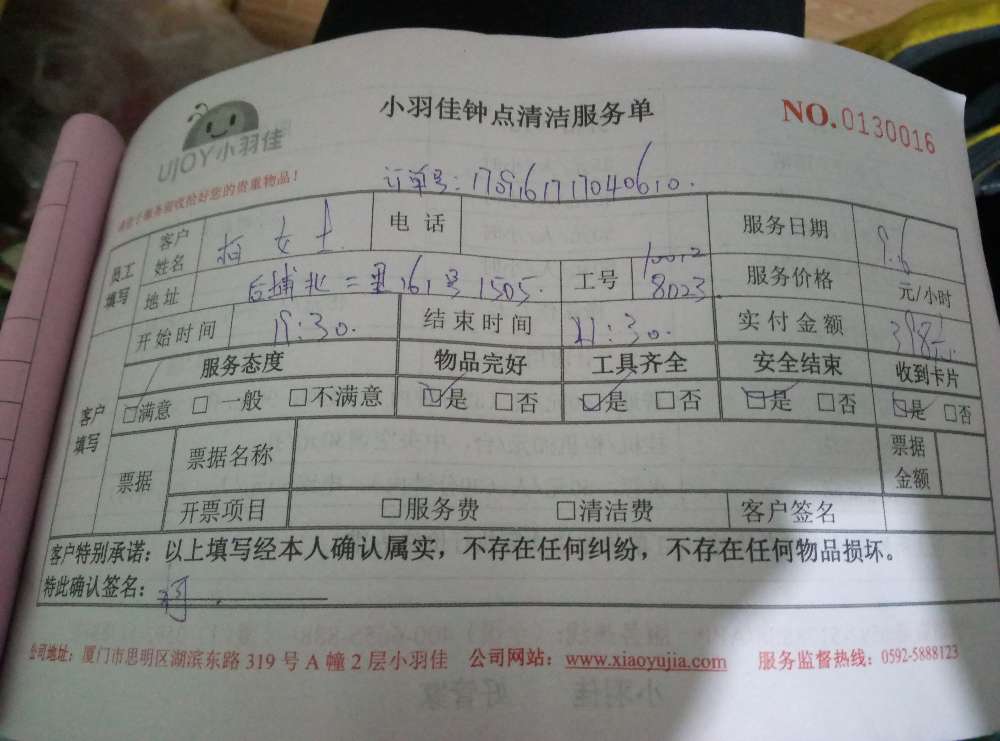 小羽佳钟点清洁服务单
NO.0130016
UJOY小羽佳
订单号:
员工填写 客户姓名 女士 电话 服务日期 9.6
地址 后埔北二里161号1505. 工号 10012 8023 服务价格 元/小时
开始时间 :30. 结束时间 11:30. 实付金额
客户填写 服务态度 物品完好 工具齐全 安全结束 收到卡片
□满意 □一般 □不满意 □是 □否 □是 □否 □是 □否 □是 □否
票据 票据名称 票据金额
开票项目 □服务费 □清洁费 客户签名
客户特别承诺：以上填写经本人确认属实，不存在任何纠纷，不存在任何物品损坏。
特此确认签名：
公司地址：厦门市思明区湖滨东路 319 号 A 幢 2 层小羽佳 公司网站：www.xiaoyujia.com 服务监督热线：0592-5888123